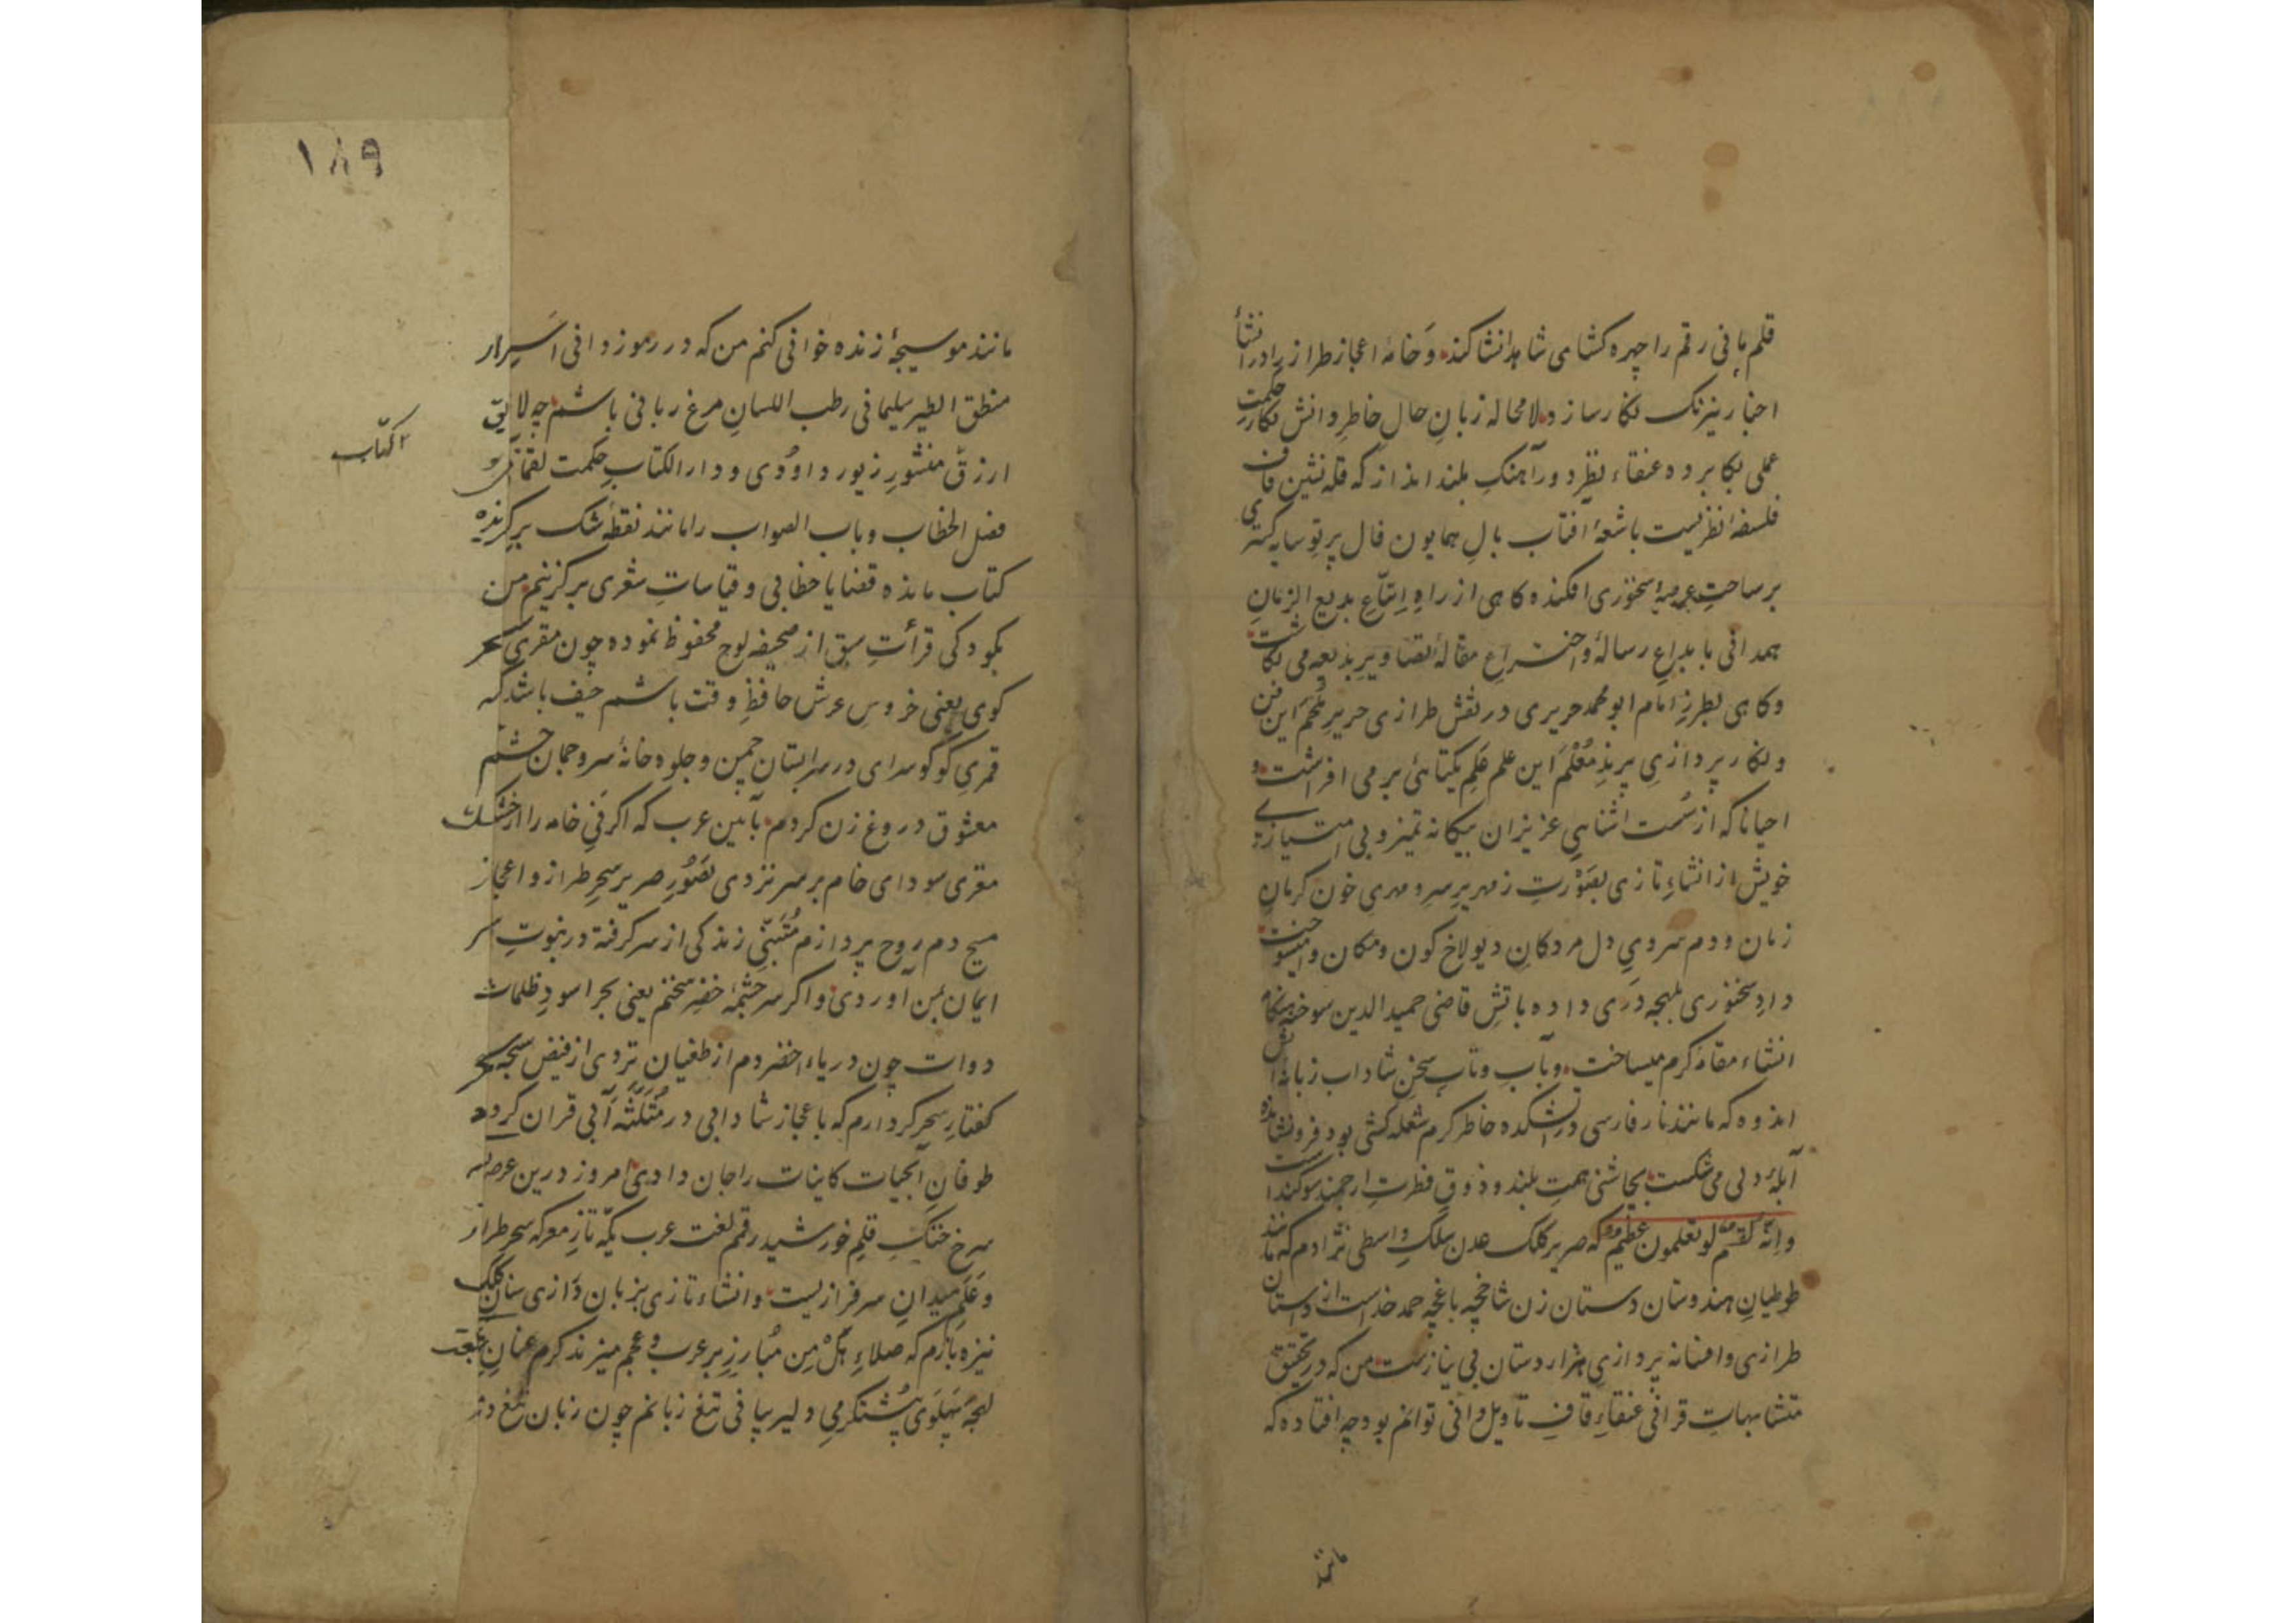 قلم مانی رقم را چهره کشای شاهد انشا کند و خامهٔ اعجاز طراز را در انشأ
اخبار نیرنک نکار سازد لامحاله زبانِ حالِ خاطرِ دانش نکار حکمت
عملی بکار برد و عنقاء نظر دور آهنکِ بلند انداز که قله نشین قاف
فلسفهٔ نظریست باشعهٔ افتاب بالِ همایون فال پرتوِ سایه کستری
بر ساحتِ عرصهٔ سخنوری افکند و کاهی از راهِ اِتباعِ بدیع الزمانِ
همدانی بابداعِ رساله و اختراعِ مقالهٔ تصاویرِ بدیعه می نکاشت
و کاهی بطرزِ امام ابو محمد حریری در نقش طرازی حریرِ مُلحَم این فن
و نکار پردازیِ پرندِ مُعْلَم این علم عَلَمِ یکتائی بر می افراشت و
احیانا که از سَمت اشنائیِ عزیزان بیکانه تمیز و بی امتیازیِ
خویش از انشاءِ تازی بصَوْرتِ زمهریرِ سرد مهریِ خون کرمانِ
زمان و دم سردیِ دل مردکانِ دیولاخِ کون و مکان وا میسوخت
دادِ سخنوری بلهجه دَری داده باتشِ قاضی حمید الدین سوخته هنکام
انشاء مقامه کرم میساخت و بآبِ و تابِ سخنِ شاداب زبانهٔ آتش
اندوه که مانند نار فارسی در آتشکده خاطر کرم شعله کشی بود فرو نشانده
آبلهٔ دلی می شکست بچاشنی همتِ بلند و ذوقِ فطرتِ ارجمند سوکند است
وانّه لَقسَمٌ لو تعلمون عظیم که صریر کلک عدن سلکِ واسطی نژادم که مانند
طوطیانِ هندوستان دستان زن شاخچه باغچه حمد خداست از داستان
طرازی و افسانه پردازیِ هزار دستان بی نیازست من که در تحقیق
متشابهاتِ قرانی عنقاءِ قافِ تاویل دانی توانم بود چه افتاده که
مانند
۱۸۹
مانند موسیجهٔ زنده خوانی کنم من که در رموز دانی اَسرار
منطق الطیر سلیمانی رطب اللسانِ مرغ ربانی باشم چه لایق
ارزقِ منشورِ زبور داوُدی و دار الکتابِ حکمت لقمان و
فصل الخطاب و باب الصواب را مانند نقطهٔ شک بر کرنده
الکتاب
کتاب مانده قضایا خطابی و قیاساتِ شعری بر کزینم من
بکودکی قرأتِ سبق از صحیفهٔ لوحِ محفوظ نموده چون مقریِ سحر
کوی یعنی خروسِ عرش حافظِ وقت باشم حیف باشد که
قمریِ کوکو سرای در سرابستانِ چمن و جلوه خانهٔ سرو چمان چشم
معشوقِ دروغ زن کردم بآئین عرب که اکر نیِ خامه را از خشک
مغزی سودای خام بر سر نزدی بصَوْرِ صریرِ سحرِ طراز و اعجاز
مسیح دم روح پردازم مُتَنَبّی زندکی از سر کرفته در نبوتِ سر
ایمان بمن آوردی و اکر سرچشمهٔ خضرِ سخنم یعنی بحر اسودِ ظلمات
دوات چون دریاء اخضر دم از طغیان نزدی از فیض
کفتارِ سحر کردارم که باعجاز شادابی در مُثَلَّثهٔ آبی قران کرده
طوفانِ آبحیات کاینات را جان دادی امروز درین عرصه
سرخ خنکِ قلمِ خورشید رقمم لغت عرب یکّه تازِ معرکه سحر طراز
و عَلَمِ میدانِ سرفرازیست و انشاء تازی بزبان دَرازی سنان کلک
نیزه بازم که صلاءِ هَلْ مِن مُبارِز بر عرب و عجم میزند کرم عنانِ
لهجهٔ پَهلَوی پُشتکرمیِ دلیر بیانی تیغ زبانم چون زبان تیغ